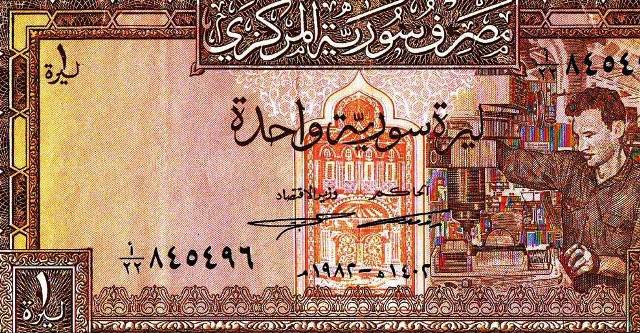 مصرف سورية المركزي
١
ليرة
أ/٢٢ ٨٤٥٤٩
ليرة سورية واحدة
الحاكم وزير الاقتصاد
أ/٢٢ ٨٤٥٤٩٦
١٤٠٢ه-١٩٨٢م
١
ليرة